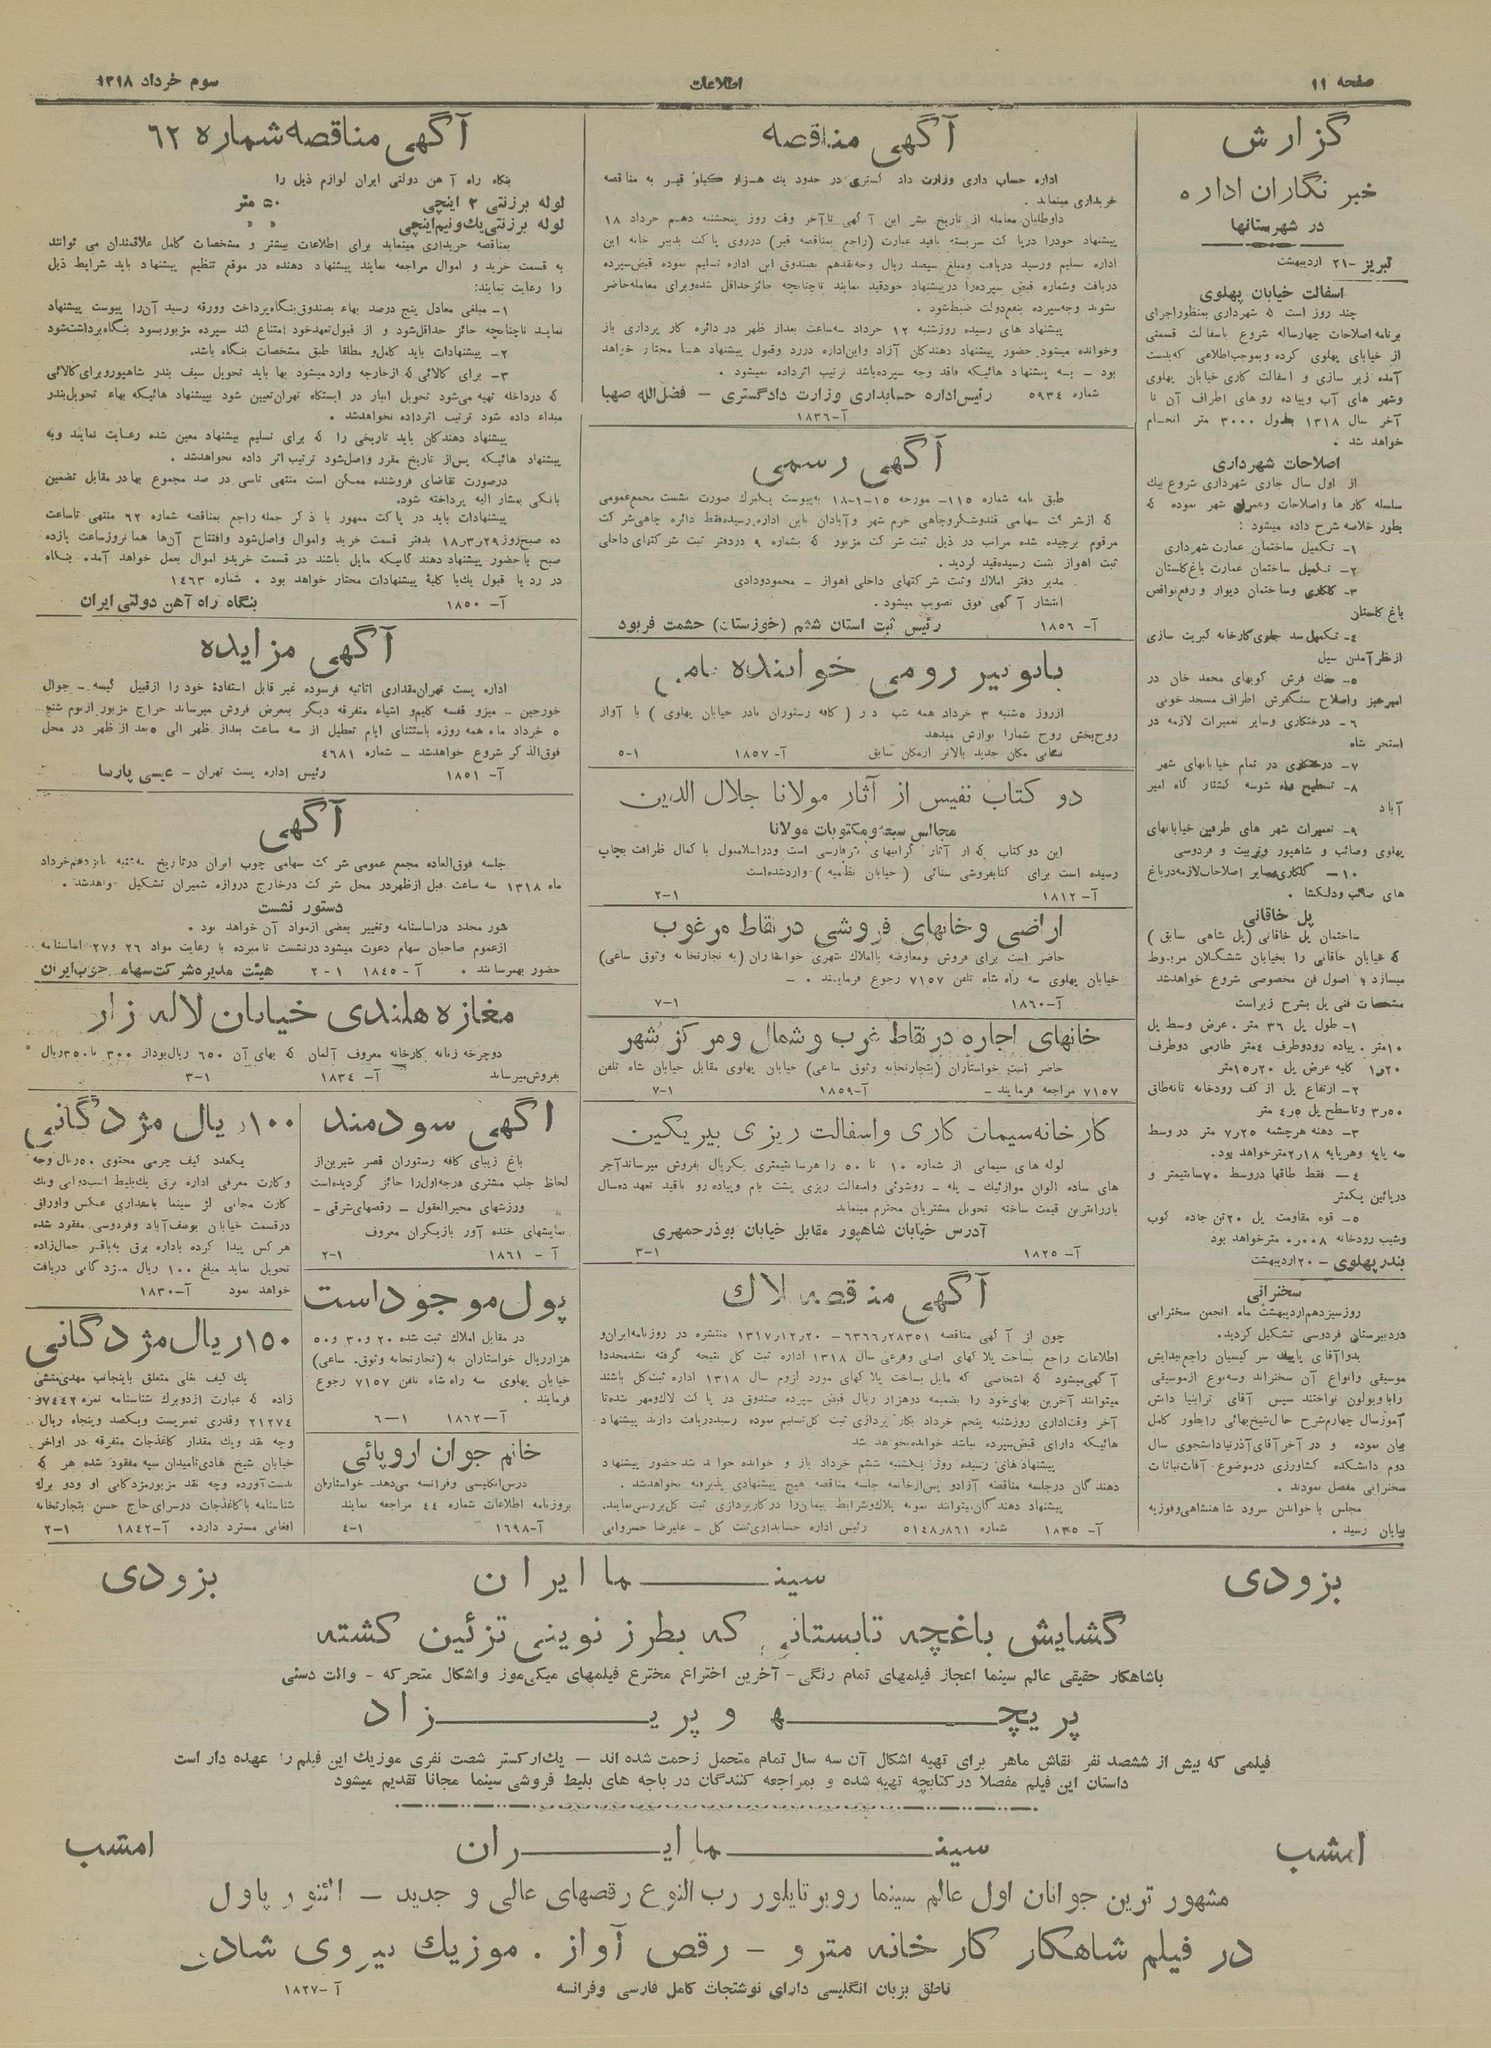 صفحه ۱۱
اطلاعات
سوم خرداد ۱۳۱۸
گزارش
خبر نگاران اداره
در شهرستانها
تبریز -۲۱ اردیبهشت
اسفالت خیابان پهلوی
چند روز است که شهرداری بمنظوراجرای
برنامه اصلاحات چهارساله شروع باسفالت قسمتی
از خیابای پهلوی کرده وبموجب‌اطلاعی که‌بدست
آمده زیر سازی و اسفالت کاری خیابان پهلوی
وشهر های آب وپیاده روهای اطراف آن تا
آخر سال ۱۳۱۸ بطول ۳۰۰۰ متر انجام
خواهد شد .
اصلاحات شهرداری
از اول سال جاری شهرداری شروع بیک
سلسله کار ها واصلاحات وعمران شهر نموده که
بطور خلاصه شرح داده میشود :
۱- تکمیل ساختمان عمارت شهرداری
۲- تکمیل ساختمان عمارت باغ‌گلستان
۳- گلکاری وساختمان دیوار و رفع‌نواقص
باغ گلستان
۴- تکمیل‌سد جلوی‌کارخانه کبریت سازی
ازخطرآمدن سیل
۵- سنگ فرش کویهای محمد خان در
امیرخیز واصلاح سنگفرش اطراف مسجد خونی
۶- درختکاری وسایر تعمیرات لازمه در
استخر شاه
۷- درختکاری در تمام خیابانهای شهر
۸- تسطیح راه شوسه کشتار گاه امیر
آباد
۹- تعمیرات شهر های طرفین خیابانهای
پهلوی وصائب و شاهپور وتربیت و فردوسی
۱۰- گلکاری‌وسایر اصلاحات‌لازمه‌درباغ
های صائب ودلگشا .
پل خاقانی
ساختمان پل خاقانی (پل شاهی سابق )
که خیابان خاقانی را بخیابان ششگلان مربوط
میسازد با اصول فن مخصوصی شروع خواهدشد
مشخصات فنی پل بشرح زیراست
۱- طول پل ۳۶ متر . عرض وسط پل
۱۰متر . پیاده رودوطرف ۴متر طارمی دوطرف
۱٫۲۰ کلیه عرض پل ۱۵٫۲۰متر
۲- ارتفاع پل از کف رودخانه تانه‌طاق
۳٫۵۰ وتاسطح پل ۴٫۵ متر
۳- دهنه هرچشمه ۷٫۲۵ متر در وسط
سه پایه وهرپایه ۲٫۱۸مترخواهد بود.
۴- فقط طاقها دروسط ۷۰سانتیمتر و
درپائین یکمتر
۵- قوه مقاومت پل ۲۰تن جاده کوب
وشیب رودخانه ۰٫۰۰۸ مترخواهد بود
بندرپهلوی - ۲۰اردیبهشت
سخنرانی
روزسیزدهم‌اردیبهشت ماه انجمن سخنرانی
دردبیرستان فردوسی تشکیل گردید.
موسیقی وانواع آن سخنراند وسه‌نوع ازموسیقی
آموزسال چهارم‌شرح حال‌شیخ‌بهائی رابطور کامل
بیان نموده و در آخرآقای‌آذرنیادانشجوی سال
دوم دانشکده کشاورزی درموضوع آفات‌نباتات
سخنرانی مفصل نمودند .
مجلس باخواندن سرود شاهنشاهی‌وفوزیه
بپایان رسید .
آگهی مناقصه
اداره حساب داری وزارت داد گستری در حدود یك هزار کیلو قیر به مناقصه
خریداری مینماید .
داوطلبان معامله از تاریخ نشر این آ گهی تاآخر وقت روز پنجشنبه دهم خرداد ۱۸
پیشنهاد خودرا درپا کت سربسته باقید عبارت (راجع بمناقصه قیر) درروی پا کت بدبیر خانه این
اداره تسلیم ورسید دریافت ومبلغ سیصد ریال وجه‌نقدهم بصندوق این اداره تسلیم نموده قبض‌سپرده
دریافت وشماره قبض سپرده‌را درپیشنهاد خودقید نمایند تاچنانچه حائزحداقل شده‌وبرای معامله‌حاضر
نشوند وجه‌سپرده بنفع‌دولت ضبط‌شود.
پیشنهاد های رسیده روزشنبه ۱۲ خرداد سه‌ساعت بعداز ظهر در دائره کار پردازی باز
وخوانده میشود. حضور پیشنهاد دهندکان آزاد واین‌اداره دررد وقبول پیشنهاد هـا مختار خواهد
بود - به پیشنهاد هائیکه فاقد وجه سپرده‌باشد ترتیب اثرداده نمیشود .
شماره ۵۹۳۴ رئیس‌اداره حسابداری وزارت دادگستری - فضل‌الله صهبا
آ-۱۸۳۶
آگهی رسمی
طبق نامه شماره ۱۱۵- مورخه ۱۵-۱-۱۸ به‌پیوست یکبرك صورت نشست مجمع‌عمومی
که ازشر کت سهامی قندوشکروچای خرم شهر وآبادان باین اداره رسیده‌فقط دائره چای‌شر کت
مرقوم برچیده شده مراتب در ذیل ثبت شر کت مزبور که بشماره ۹ دردفتر ثبت شر کتهای داخلی
ثبت اهواز بثبت رسیده‌قید گردید.
مدیر دفتر املاك وثبت شر کتهای داخلی اهواز - محمودودادی
انتشار آ گهی فوق تصویب میشود .
آ- ۱۸۵۶ رئیس ثبت استان ششم (خوزستان) حشمت فربود
بانو پیر رومی خواننده نامی
ازروز ۵شنبه ۳ خرداد همه شب در ( کافه رستوران نادر خیابان پهلوی ) با آواز
روح‌بخش روح شمارا نوازش میدهد
نشانی مکان جدید بالاتر ازمکان سابق آ- ۱۸۵۷ ۵-۱
دو کتاب نفیس از آثار مولانا جلال الدین
مجالس سبعه ومکتوبات مولانا
رسیده است برای کتابفروشی سنائی (خیابان نظمیه ) واردشده‌است
آ- ۱۸۱۲ ۲-۱
اراضی وخانهای فروشی در نقاط مرغوب
حاضر است برای فروش ومعاوضه باملاك شهری خواستاران (به تجارتخانه وثوق ساعی)
خیابان پهلوی سه راه شاه تلفن ۷۱۵۷ رجوع فرمایند . -
آ-۱۸۶۰ ۷-۱
خانهای اجاره در نقاط غرب وشمال ومرکز شهر
حاضر است خواستاران (بتجارتخانه وثوق ساعی) خیابان پهلوی مقابل خیابان شاه تلفن
۷۱۵۷ مراجعه فرمایند - آ-۱۸۵۹ ۷-۱
کارخانه سیمان کاری واسفالت ریزی بیریکین
لوله های سیمانی از شماره ۱۰ تا ۵۰ را هرسانتیمتری یکریال بفروش میرساندآجر
های ساده الوان موازئیك - پله - روشوئی واسفالت ریزی پشت بام وپیاده رو باقید تعهد ده‌سال
بارزانترین قیمت ساخته تحویل مشتریان محترم مینماید
آدرس خیابان شاهپور مقابل خیابان بوذرجمهری
آ- ۱۸۲۵ ۳-۱
آگهی مناقصه پلاك
چون از آ گهی مناقصه ۲۸۳۵۱ر۶۳۶۶ - ۲۰ر۱۲ر۱۳۱۷ منتشره در روزنامه‌ایران‌و
اطلاعات راجع بساخت پلا کهای اصلی وفرعی سال ۱۳۱۸ اداره ثبت کل نتیجه گرفته نشدمجددا
آگهی‌میشود که اشخاصی که مایل بساخت پلا کهای مورد لزوم سال ۱۳۱۸ اداره ثبت‌کل باشند
میتوانند آخرین بهای‌خود را بضمیمه دوهزار ریال قبض سپرده صندوق در پا کت لاك‌ومهر شده‌تا
آخر وقت‌اداری روزشنبه پنجم خرداد بکار پردازی ثبت کل‌تسلیم نموده رسیددریافت دارند پیشنهاد
هائیکه دارای قبض‌سپرده نباشد خوانده‌نخواهد شد
پیشنهادهای رسیده روز یکشنبه ششم خرداد باز و خوانده خواهد شد حضور پیشنهاد
دهند گان درجلسه مناقصه آزادو پس‌ازخاتمه جلسه مناقصه هیچ پیشنهادی پذیرفته نخواهدشد .
پیشنهاد دهندگان‌میتوانند نمونه پلاك‌وشرایط پیمان‌را درکارپردازی ثبت کل‌بررسی‌نمایند.
آ- ۱۸۳۵ شماره ۸۶۱ر۵۱۴۸ رئیس اداره حسابداری‌ثبت کل - علیرضا خسروانی
آگهی مناقصه شماره ۶۲
بنگاه راه آ هن دولتی ایران لوازم ذیل را
لوله برزنتی ۲ اینچی ۵۰ متر
لوله برزنتی یك‌ونیم‌اینچی « «
بمناقصه خریداری مینماید برای اطلاعات بیشتر و مشخصات کامل علاقمندان می توانند
به قسمت خرید و اموال مراجعه نمایند پیشنهاد دهنده در موقع تنظیم پیشنهاد باید شرایط ذیل
را رعایت نمایند:
۱- مبلغی معادل پنج درصد بهاء بصندوق‌بنگاه‌پرداخت وورقه رسید آن‌را پیوست پیشنهاد
نماید تاچنانچه حائز حداقل‌شود و از قبول‌تعهدخود امتناع کند سپرده مزبوربسود بنگاه‌برداشت‌شود
۲- پیشنهادات باید کامل‌و مطلقا طبق مشخصات بنگاه باشد.
۳- برای کالائی که ازخارجه واردمیشود بها باید تحویل سیف بندر شاهپوروبرای‌کالائی
که درداخله تهیه می‌شود تحویل انبار در ایستگاه تهران‌تعیین شود بپیشنهاد هائیکه بهاء تحویل‌بندر
مبداء داده شود ترتیب اثرداده نخواهدشد .
پیشنهاد دهندکان باید تاریخی را که برای تسلیم پیشنهاد معین شده رعایت نمایند وبه
پیشنهاد هائیکه پس‌از تاریخ مقرر واصل‌شود ترتیب اثر داده نخواهدشد .
درصورت تقاضای فروشنده ممکن است منتهی تاسی در صد مجموع بهادر مقابل تضمین
بانکی بمشار الیه پرداخته شود.
پیشنهادات باید در پاکت ممهور با ذکر جمله راجع بمناقصه شماره ۶۲ منتهی تاساعت
ده صبح‌روز۲۹ر۳ر۱۸ بدفتر قسمت خرید واموال واصل‌شود وافتتاح آن‌ها همانروزساعت یازده
صبح باحضور پیشنهاد دهند گانیکه مایل باشند در قسمت خریدو اموال بعمل خواهد آمده بنگاه
در رد یا قبول یك‌یا کلیهٔ پیشنهادات مختار خواهد بود . شماره ۱۴۶۳
آ- ۱۸۵۰ بنگاه راه آهن دولتی ایران
آگهی مزایده
اداره پست تهران‌مقداری اثاثیه فرسوده غیر قابل استفادهٔ خود را ازقبیل کیسه - جوال
خورجین - میزو قفسه کلیم‌و اشیاء متفرقه دیگر بمعرض فروش میرساند حراج مزبور ازیوم شنبه
۵ خرداد ماه همه روزه باستثنای ایام تعطیل از سه ساعت بعداز ظهر الی ۵بعد از ظهر در محل
فوق‌الذکر شروع خواهدشد - شماره ۴۶۸۱
آ- ۱۸۵۱ رئیس اداره پست تهران - عیسی پارسا
آگهی
جلسه فوق‌العاده مجمع عمومی شر کت سهامی چوب ایران درتاریخ
ماه ۱۳۱۸ سه ساعت قبل ازظهردر محل شر کت درخارج دروازه شمیران تشکیل خواهدشد .
دستور نشست
شور مجدد دراساسنامه وتغییر بعضی ازمواد آن خواهد بود .
ازعموم صاحبان سهام دعوت میشود درنشست نامبرده با رعایت مواد ۲۶ و۲۷ اساسنامه
حضور بهمرسانند . آ- ۱۸۴۵ ۲-۱ هیئت مدیره‌شرکت‌سهامی چوب‌ایران
مغازه هلندی خیابان لاله زار
دوچرخه زنانه کارخانه معروف آلمان که بهای آن ۶۵۰ ریال‌بوداز ۳۰۰ تا۳۵۰ریال
بفروش‌میرساند آ- ۱۸۳۴ ۳-۱
آگهی سودمند
باغ زیبای کافه رستوران قصر شیرین‌از
لحاظ جلب مشتری درجه‌اول‌را حائز گردیده‌است
ورزشهای محیرالعقول - رقصهای‌شرقی -
نمایشهای خنده آور بازیگران معروف
آ - ۱۸۶۱ ۲-۱
پول موجود است
در مقابل املاك ثبت شده ۲۰ و۳۰ و۵۰
هزارریال خواستاران به (تجارتخانه وثوق. ساعی)
خیابان پهلوی سه راه شاه تلفن ۷۱۵۷ رجوع
فرمایند .
آ-۱۸۶۲ ۶-۱
خانم جوان اروپائی
درس‌انگلیسی وفرانسه می‌دهد- خواستاران
بروزنامه اطلاعات شماره ۴۴ مراجعه نمایند
آ-۱۶۹۸ ۴-۱
۱۰۰ریال مژدگانی
یکعدد کیف چرمی محتوی ۵۰ریال وجه
وکارت معرفی اداره برق یك‌بلیط اسب‌دوانی ویك
کارت مجانی از سینما بامقداری عکس واوراق
درقسمت خیابان یوسف‌آباد وفردوسی مفقود شده
هرکس پیدا کرده باداره برق به‌باقر جمال‌زاده
تحویل نماید مبلغ ۱۰۰ ریال مژدگانی دریافت
خواهد نمود آ-۱۸۳۰
۱۵۰ریال مژدگانی
یك کیف بغلی متعلق باینجانب مهدی‌منشی
زاده که عبارت ازدوبرك شناسنامه نمره ۳۷۴۴۲و
۲۱۲۷۴ وقدری تمبرپست ویکصد وپنجاه ریال
وجه نقد ویك مقدار کاغذجات متفرقه در اواخر
خیابان شیخ هادی‌تامیدان سپه مفقود شده هر که
بدست‌آورده وجه نقد مزبورمژدگانی او ودو برك
شناسنامه باکاغذجات درسرای حاج حسن بتجارتخانه
افغانی مسترد دارد. آ-۱۸۴۲ ۲-۱
بزودی سینما ایران بزودی
گشایش باغچه تابستانی که بطرز نوینی تزئین گشته
باشاهکار حقیقی عالم سینما اعجاز فیلمهای تمام رنگی - آخرین اختراع مخترع فیلمهای میکی‌موز واشکال متحرکه - والت دسنی
پریچه و پریزاد
فیلمی که بیش از ششصد نفر نقاش ماهر برای تهیه اشکال آن سه سال تمام متحمل زحمت شده اند - یك‌ارکستر شصت نفری موزیك این فیلم را عهده دار است
داستان این فیلم مفصلا درکتابچه تهیه شده و بمراجعه کنندگان در باجه های بلیط فروشی سینما مجانا تقدیم میشود
امشب سینما ایران امشب
مشهور ترین جوانان اول عالم سینما روبرتایلور رب النوع رقصهای عالی و جدید - الئنور پاول
در فیلم شاهکار کارخانه مترو - رقص آواز . موزیك نیروی شادی
ناطق بزبان انگلیسی دارای نوشتجات کامل فارسی وفرانسه آ-۱۸۲۷